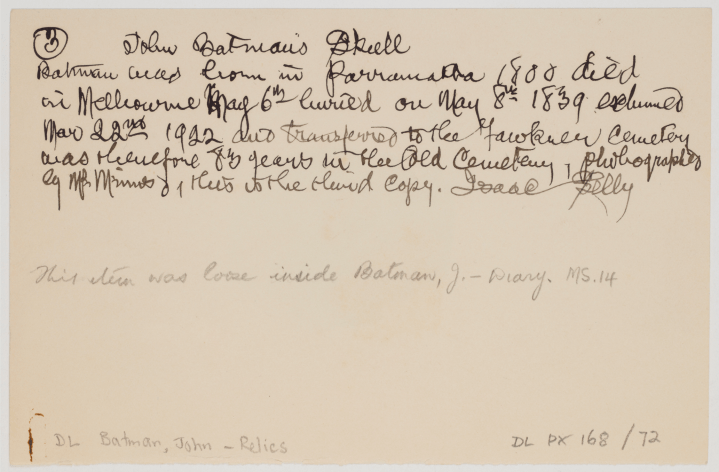 ③ John Batman's Skull
Batman was born in Parramatta 1800 died
in Melbourne May 6th buried on May 8th 1839 exhumed
Mar 22nd 1922 and transferred to the Fawkner Cemetery
was therefore 83 years in the Old Cemetery, photographed
by Mr , this is the third copy. Isaac Selby
This item was loose inside Batman, J. - Diary. MS.14
DL Batman, John - Relics
DL PX 168 / 72